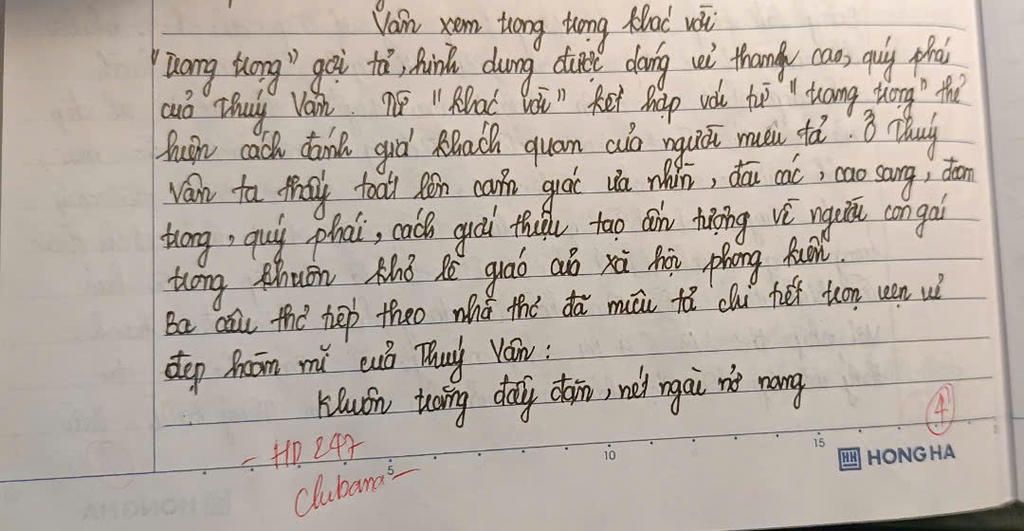 Vân xem trang trọng khác vời
"Trang trọng" gợi tả, hình dung được dáng vẻ thanh cao, quý phái
của Thuý Vân. Từ "khác vời" kết hợp với từ "trang trọng" thể
hiện cách đánh giá khách quan của người miêu tả. Ở Thuý
Vân ta thấy toát lên cảm giác ưa nhìn, đài các, cao sang, đoan
trang, quý phái, cách giới thiệu tạo ấn tượng về người con gái
trong khuôn khổ lễ giáo của xã hội phong kiến.
Ba câu thơ tiếp theo nhà thơ đã miêu tả chi tiết trọn vẹn vẻ
đẹp hoàn mĩ của Thuý Vân:
Khuôn trăng đầy đặn, nét ngài nở nang
4
- HD 247
Clubana -
5 10 15
HH HONG HA